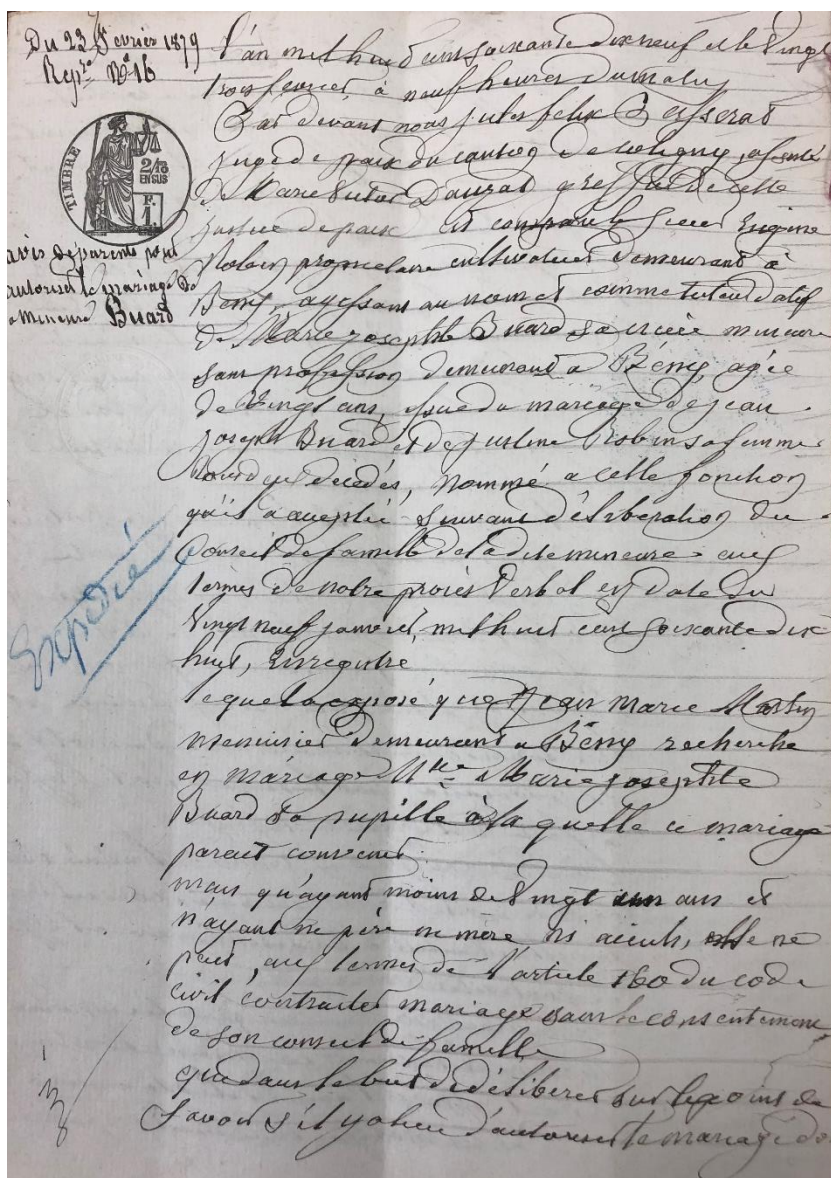 Du 23 Fevrier 1879
Rep.re N° 16
TIMBRE
2/10
EN SUS
F.
1.
avis de parents pour
autoriser le mariage de
la Mineure Buard
Expédié
L'an mil huit cent soixante dix neuf et le vingt
trois fevrier, à neuf heures du matin
Par devant nous jules felix
juge de paix du canton de Coligny, assisté
de Marie Victor Dauzat greffier de cette
justice de paix est comparu le sieur Eugène
Robin propriétaire cultivateur demeurant à
Bény, agissant au nom et comme tuteur datif
de Marie josephte Buard sa nièce mineure
sans profession demeurant a Bény, agée
de vingt ans, issue du mariage de jean
joseph Buard et de justine Robin sa femme
tous deux décédés, nommé a cette fonction
qu'il a acceptée suivant délibération du
Conseil de famille de la dite mineure aux
termes de notre procès verbal en date du
vingt neuf janvier mil huit cent soixante dix
huit, enregistré
lequel a exposé que Jean Marie Martin
menuisier demeurant a Bény recherche
en mariage Mlle Marie josephte
Buard sa pupille à la quelle ce mariage
parait convenir.
mais qu'ayant moins de vingt un ans et
n'ayant ni père ni mère, ni aieuls, elle ne
peut, aux termes de l'article 160 du code
civil contracter mariage sans le consentement
de son conseil de famille
que dans le but de délibérer sur le point de
savoir s'il y a lieu d'autoriser le mariage de